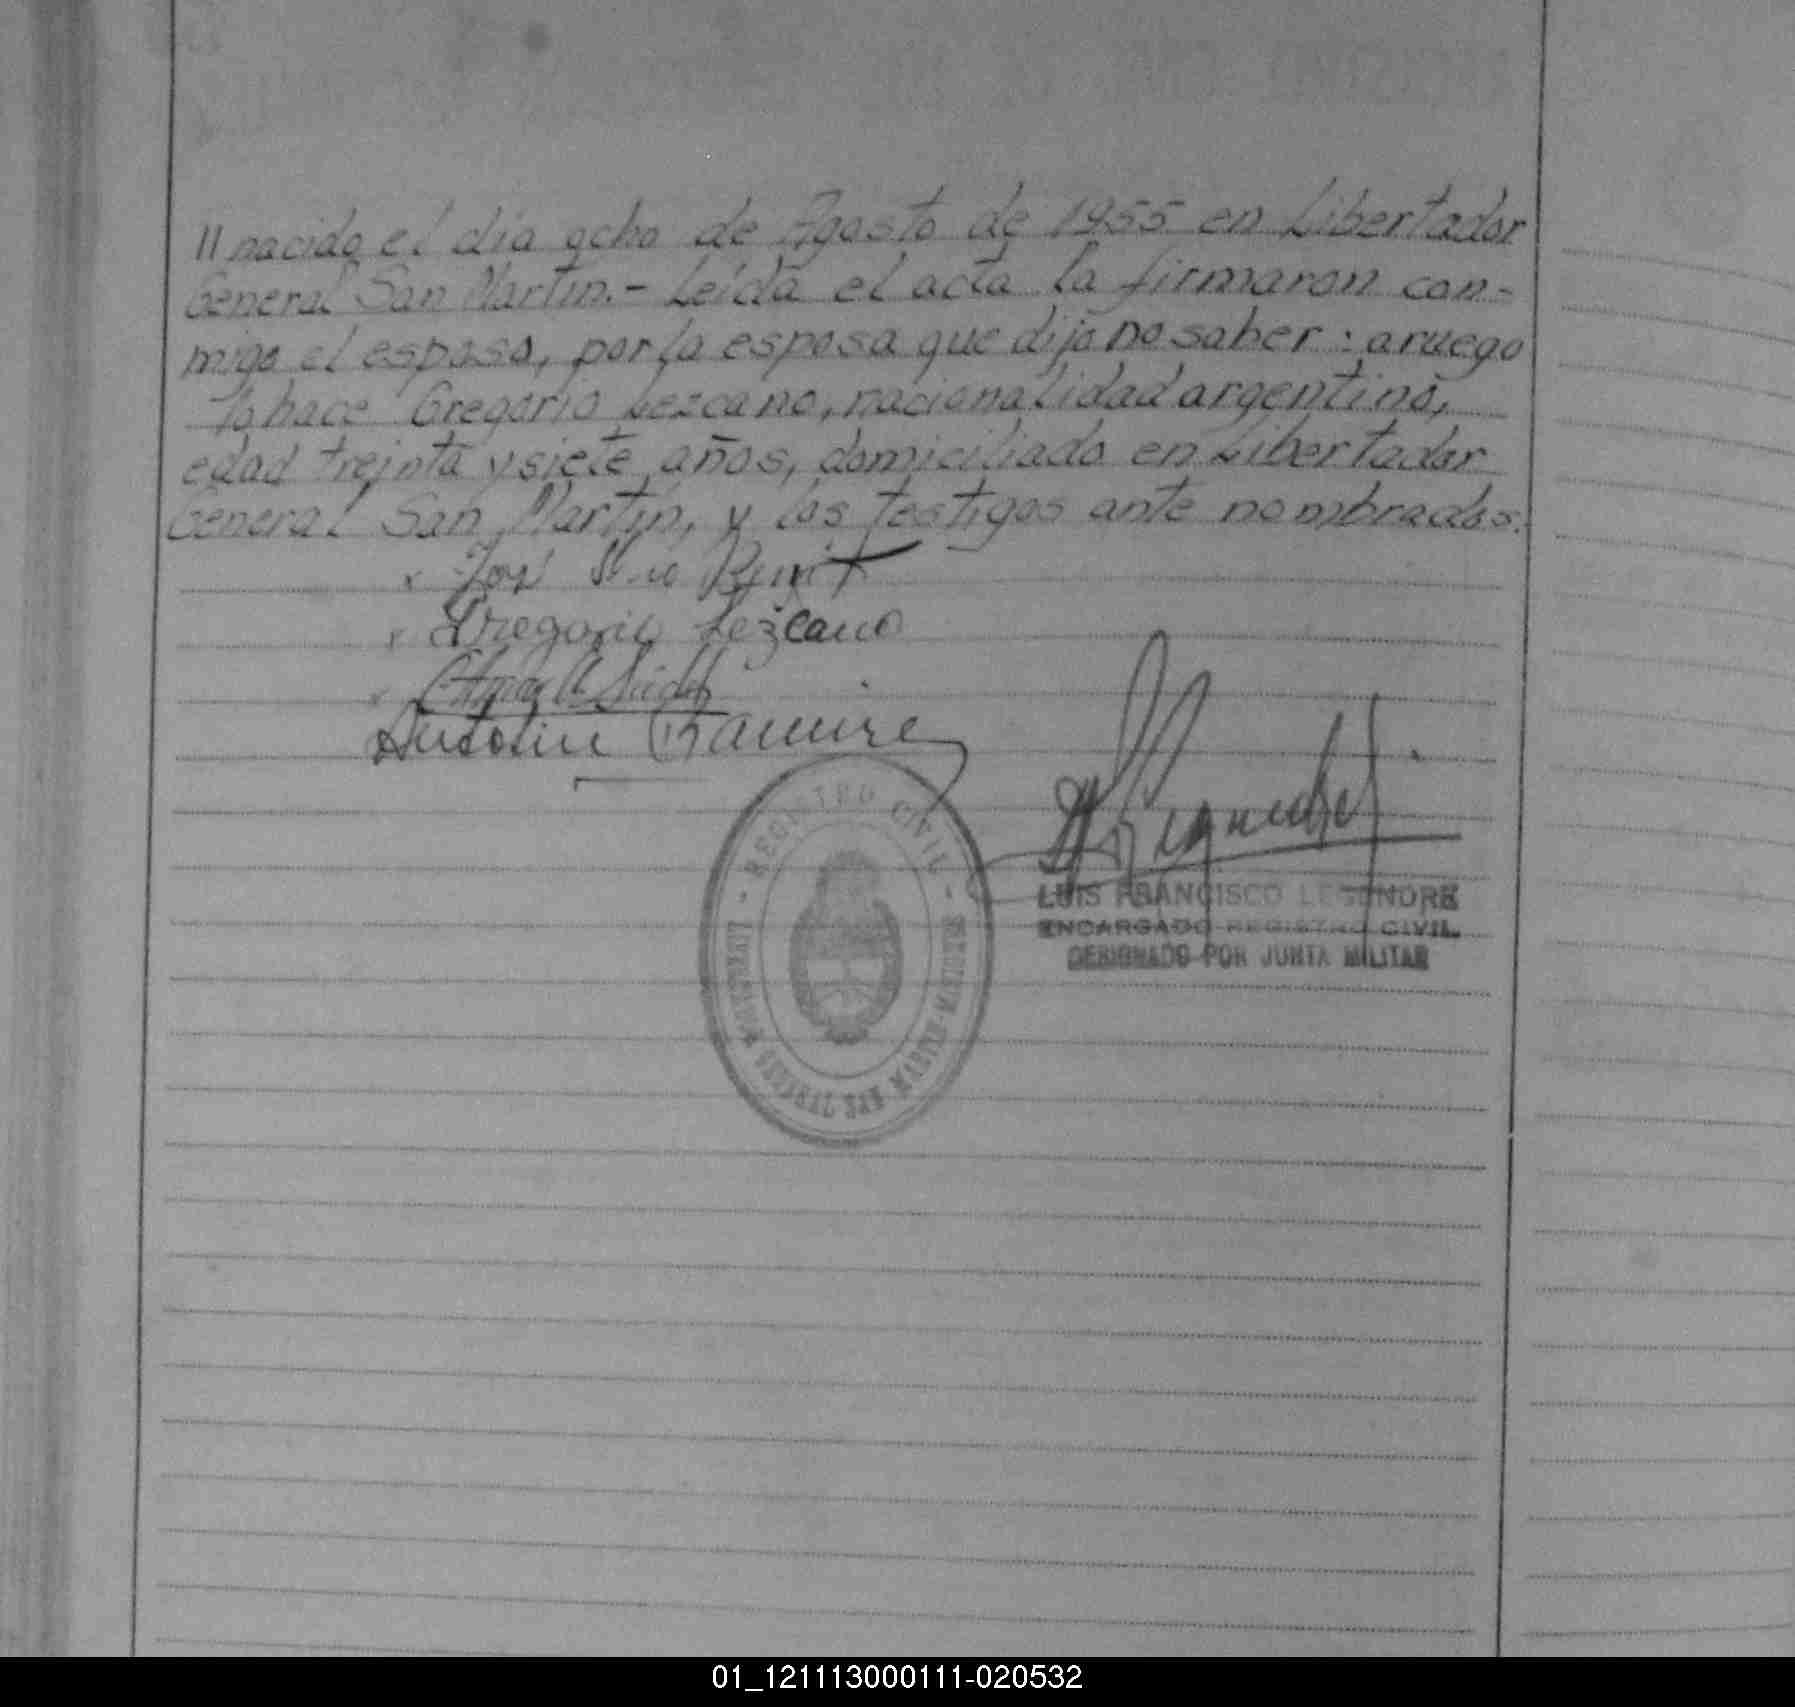 // nacido el día ocho de Agosto de 1955 en Libertador
General San Martín.- Leída el acta la firmaron con-
migo el esposo, por la esposa que dijo no saber: a ruego
lo hace Gregorio Lezcano, nacionalidad argentino,
edad treinta y siete años, domiciliado en Libertador
General San Martín, y los testigos ante nombrados.
x José
x Gregorio Lezcano
x
Antolin Ramirez
REGISTRO CIVIL
LUIS FRANCISCO LEGENDRE
ENCARGADO REGISTRO CIVIL
DESIGNADO POR JUNTA MILITAR
01_121113000111-020532